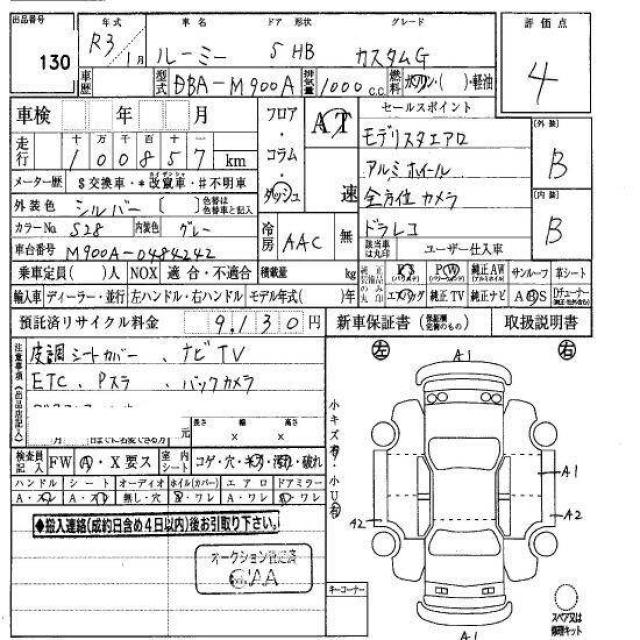 出品番号 130
年式 R3年 1月
車名 ルーミー
ドア 形状 5HB
グレード カスタムG
評価点 4
車歴
型式 DBA-M900A
排気量 1000 c.c.
燃料 ガソリン・( )・軽油
車検 年 月
走行 十万千百十一
100857 km
メーター歴 $交換車・*改竄車・#不明車
外装色 シルバー [ ] 色替は色替車と記入
カラーNo S28 内装色 グレー
車台番号 M900A-0484242
フロア・コラム・ダッシュ
AT 速
冷房 AAC 無
セールスポイント
モデリスタエアロ
アルミホイール
全方位カメラ
ドラレコ
該当車は丸印 ユーザー仕入車
[外装] B
[内装] B
乗車定員( )人 NOX 適合・不適合 積載量 kg
純正装備品のみ丸印 PS PW 純正AW サンルーフ 革シート
エアバッグ 純正TV 純正ナビ ABS
輸入車 ディーラー・並行 左ハンドル・右ハンドル モデル年式( )年
預託済リサイクル料金 9,130円
新車保証書(保証欄完備のもの) 取扱説明書
注意事項(出品店記入)
皮調シートカバー、ナビTV
ETC、Pスラ、バックカメラ
月 日までに名変できる方 元
長さ × 幅 × 高さ
検査員記入 FW A・X要ス 室内シート コゲ・穴・キズ・汚れ・破れ
ハンドル シート オーディオ ホイル(カバー) エアロ ドアミラー
A・スレ A・スレ 無し・穴 キズ・ワレ A・ワレ キズ・ワレ
◆搬入連絡(成約日含め4日以内)後お引取り下さい。
オークション検定済
AA
小キズ有
小U有
キーコーナー
左 右
A1
A1
A2
A2
A1
スペア又は修理キット